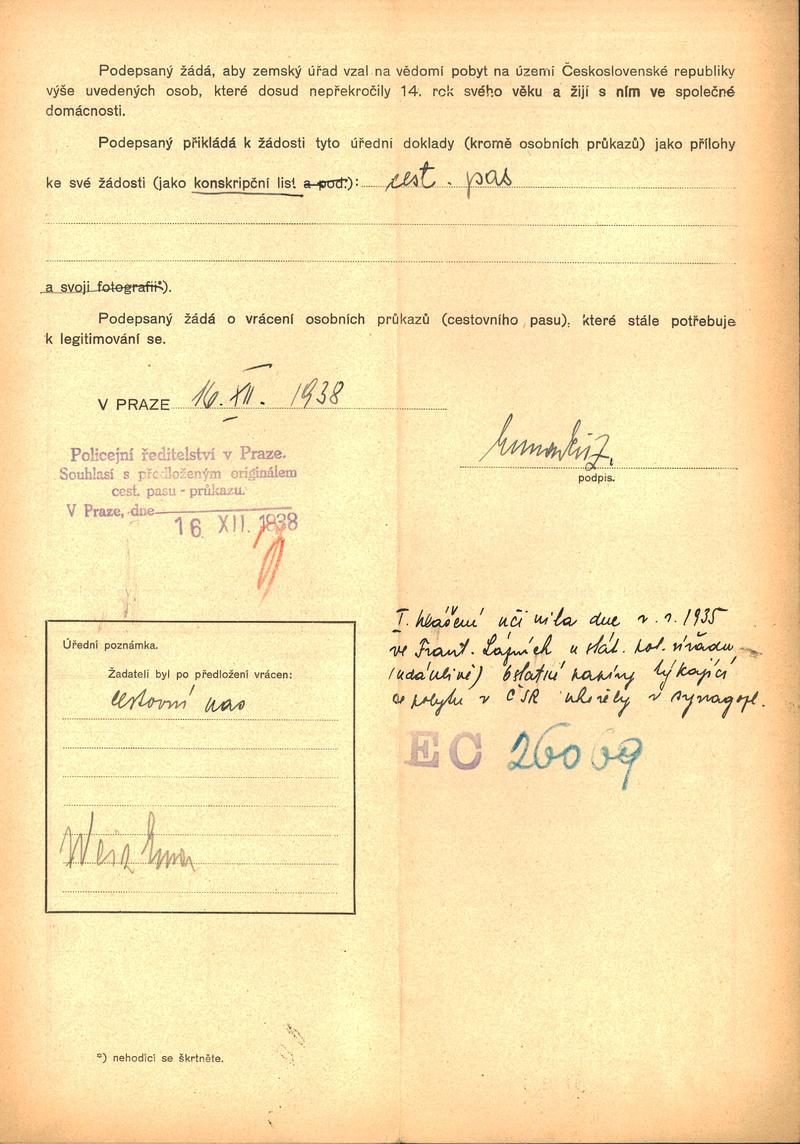 Podepsaný žádá, aby zemský úřad vzal na vědomí pobyt na území Československé republiky
výše uvedených osob, které dosud nepřekročily 14. rok svého věku a žijí s ním ve společné
domácnosti.
Podepsaný přikládá k žádosti tyto úřední doklady (kromě osobních průkazů) jako přílohy
ke své žádosti (jako konskripční list a pod.): cest. pas
a svoji fotografii*).
Podepsaný žádá o vrácení osobních průkazů (cestovního pasu), které stále potřebuje
k legitimování se.
V PRAZE 16. XII. 1938
podpis.
Policejní ředitelství v Praze.
Souhlasí s předloženým originálem
cest. pasu - průkazu.
V Praze, dne
16 XII. 1938
I. hlášení učinila dne v r. 1935
ve Frant. Lázních u stát. pol. úřadu
(údajně) ostatní týkající
se pobytu v ČSR v
EC 26069
Úřední poznámka.
Žadateli byl po předložení vrácen:
cestovní pas
*) nehodící se škrtněte.